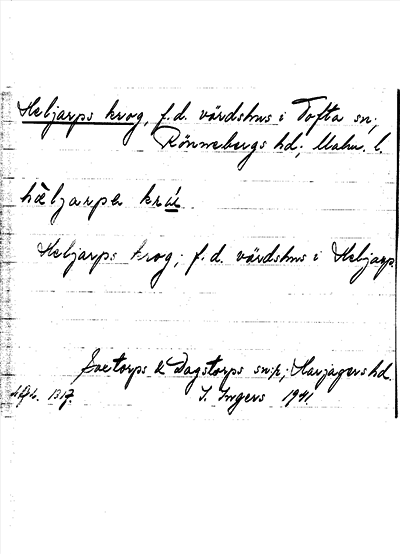 Heljarps krog, f.d. värdshus i Tofta sn;
Rönnebergs hd; Malm. l.
hèljarps
Heljarps krog; f.d. värdshus i Heljarp
& Dagstorps snr; Harjagers hd.
I. Ingers 1941.